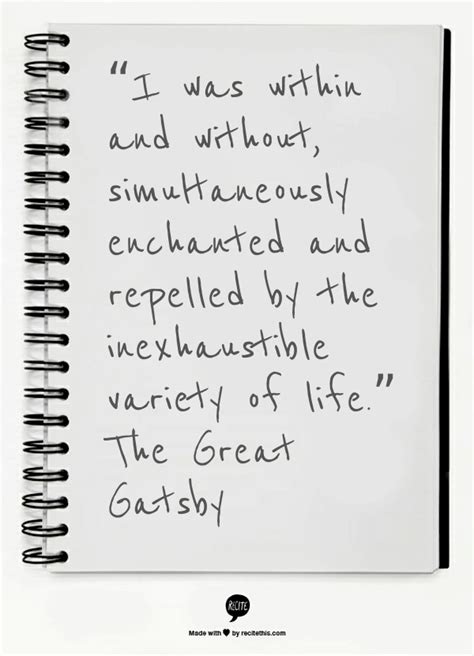 “I was within
and without,
simultaneously
enchanted and
repelled by the
inexhaustible
variety of life.”
The Great
Gatsby
RECITE
Made with ♥ by recitethis.com